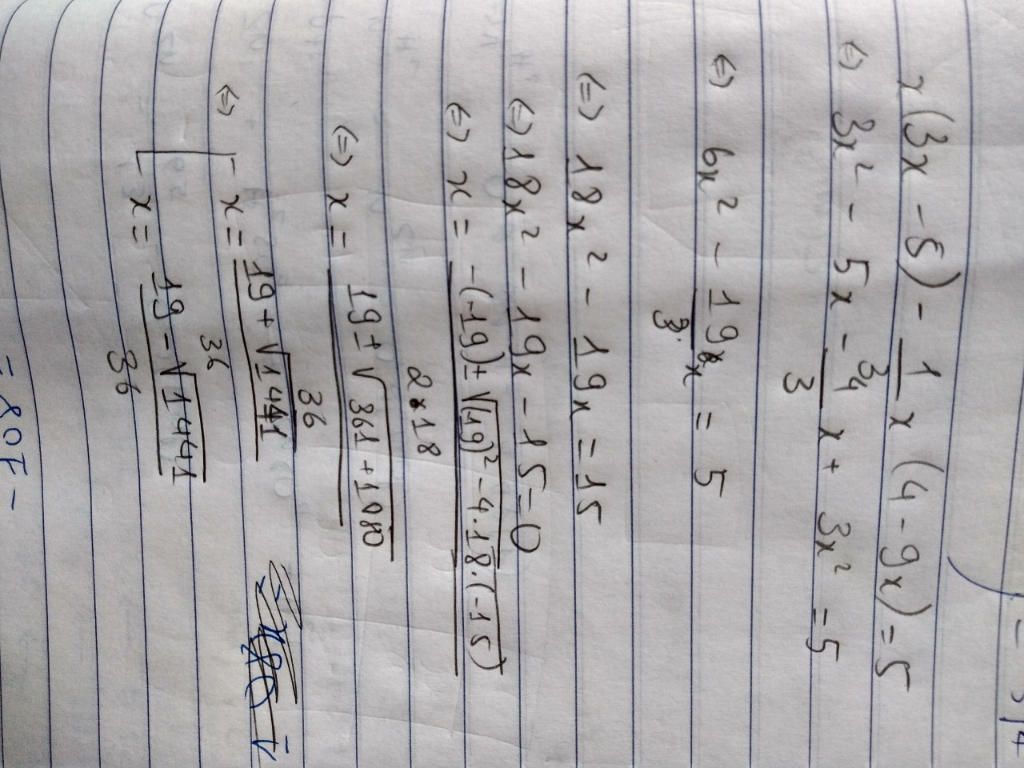 x(3x - 5) - 1/3 x (4 - 9x) = 5
⇔ 3x² - 5x - 4/3 x + 3x² = 5
⇔ 6x² - 19/3 x = 5
⇔ 18x² - 19x = 15
⇔ 18x² - 19x - 15 = 0
⇔ x = (-(-19) ± √((-19)² - 4.18.(-15))) / 2x18
⇔ x = (19 ± √(361 + 1080)) / 36
⇔ [ x = (19 + √1441) / 36
x = (19 - √1441) / 36